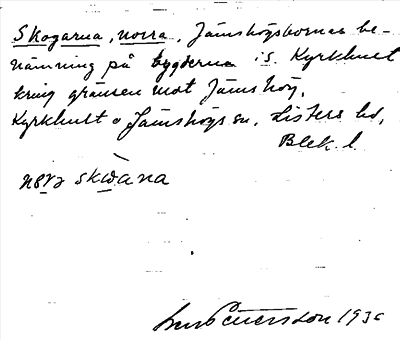 Skogarna, norra, Jämshögsbornas be-
nämning på bygderna i S. Kyrkhult
kring gränsen mot Jämshög,
Kyrkhult o Jämshögs sn, Listers hd,
Blek. l.
skwana
1930